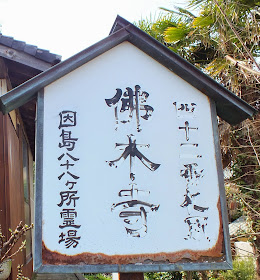 四十二番
佛木寺
因島八十八ヶ所霊場